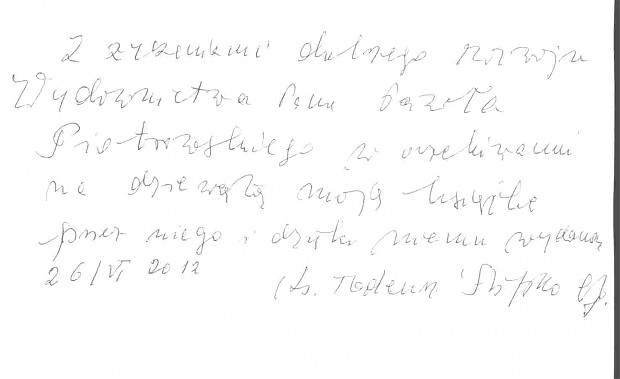 Z życzeniami dalszego rozwoju
Wydawnictwa Pana Pawła
Piotrowskiego z oczekiwaniami
na dziewiątą moją książkę
przez niego i dzięki niemu wydaną
26/VI 2012 ks. Tadeusz Ślipko SJ.